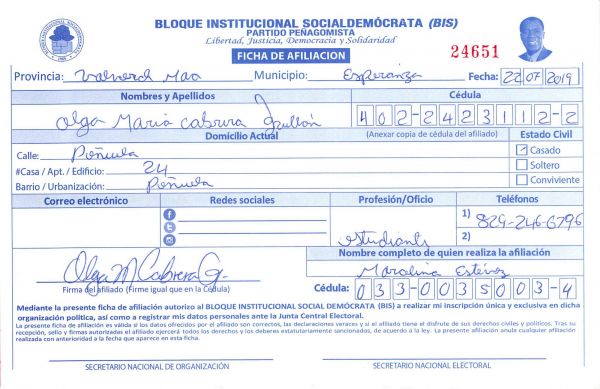 BLOQUE INSTITUCIONAL SOCIALDEMÓCRATA (BIS)
PARTIDO PEÑAGOMISTA
Libertad, Justicia, Democracia y Solidaridad
FICHA DE AFILIACION
24651
Provincia: Valverde Mao Municipio: Esperanza Fecha: 22/07/2019
Nombres y Apellidos Cédula
Olga Maria Cabrera 402-2423112-2
Domicilio Actual (Anexar copia de cédula del afiliado) Estado Civil
Calle: Peñuela Casado
#Casa / Apt. / Edificio: 24 Soltero
Barrio / Urbanización: Peñuela Conviviente
Correo electrónico Redes sociales Profesión/Oficio Teléfonos
1) 829-246-6796
estudiante 2)
Nombre completo de quien realiza la afiliación
Olga M Cabrera G. Marolina Estévez
Firma del afiliado (Firme igual que en la Cédula) Cédula: 033-0035003-4
Mediante la presente ficha de afiliación autorizo al BLOQUE INSTITUCIONAL SOCIAL DEMÓCRATA (BIS) a realizar mi inscripción única y exclusiva en dicha
organización política, así como a registrar mis datos personales ante la Junta Central Electoral.
La presente ficha de afiliación es válida si los datos ofrecidos por el afiliado son correctos, las declaraciones veraces y si el afiliado tiene el disfrute de sus derechos civiles y políticos. Tras su
recepción, sello y firmas autorizadas el afiliado ejercerá todos los derechos y los deberes estatutariamente sancionados, de acuerdo a la ley. La presente afiliación anula cualquier afiliación
realizada con anterioridad a la fecha que aparece en esta ficha.
SECRETARIO NACIONAL DE ORGANIZACIÓN SECRETARIO NACIONAL ELECTORAL